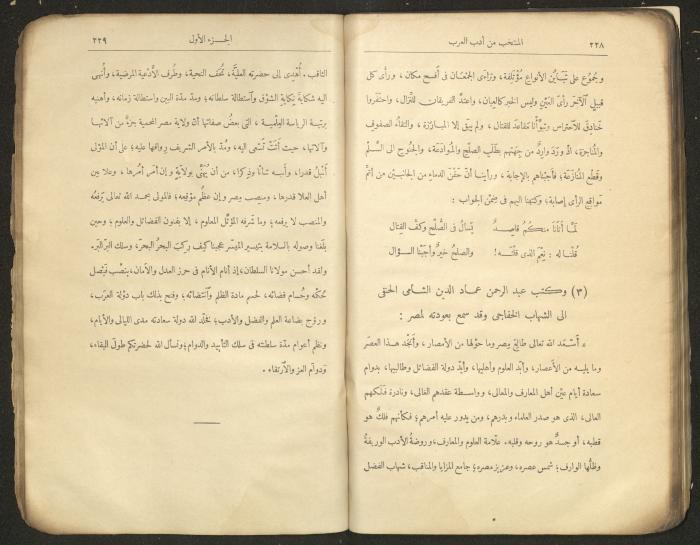 ٢٢٨
المنتخب من أدب العرب
وجموع على تَبَايُن الأنواع مؤتلفة، وتراءى الجمعان فى أفسح مكان، ورأى كل
قبيل الآخر رأى العَيْن وليس الخبر كالعيان، واعتدّ الفريقان للنزال، واحتفروا
خنادق للاحتراس وتبوّأنا مقاعد للقتال، ولم يبق إلا المبارزة، والتقاء الصفوف
والمناجزة، اذْ ورد وارد من جهتهم بطلب الصلح والموادعة، والجنوح الى السِّلم
وقطع المنازعة، فأجبناهم بالإجابة، ورأينا أنّ حقن الدماء من الجانبين من أتمّ
مواقع الرأى إصابة، وكتبنا اليهم فى ضمن الجواب :
لمّا أتانا منكمُ قاصدٌ يسأل فى الصُّلح وكفّ القتال
قُلنا له : نِعْمَ الذى قلتَه! والصلحُ خيرٌ وأجبْنا السؤال
(٣) وكتب عبد الرحمن عماد الدين الشامى الحنفى
الى الشهاب الخفاجى وقد سمع بعودته لمصر :
« أسْعَد الله تعالى طالِعَ مِصر وما حوْلها من الأمصار، وأنجد هذا العصر
وما يليه من الأعصار، وأيّد العلوم وأهليها، وأبّد دولة الفضائل وطالبيها، بدوام
سعادة أيام عيْن أهل المعارف والمعالى، وواسطة عقدهم الغالى، ونادرة فلكهم
العالى، الذى هو صدر العلماء وبدرهم، ومن يدور عليه أمرهم؛ فكأنهم فلكٌ هو
قطبه، أو جسدٌ هو روحه وقلبه، علّامة العلوم والمعارف، وروضةُ الأدب الوريفةُ
وظلّها الوارف؛ شمس عصره، وعزيز مصره؛ جامع المزايا والمناقب، شهاب الفضل
الجزء الأول
٢٢٩
الثاقب. أُهْدِى إلى حضرته العلية، تُحَف التحية، وطُرَف الأدْعية المرضية، وأُنهى
اليه شكاية نكاية الشوْق واستطالة سلطانه؛ ومدّ مدّة البين واستطالة زمانه، وأهنيه
برتبة الرياسة العلمية، التى بعضُ صفاتها أنّ ولاية مصر المحمية جزءٌ من آلائها
وآلاتها، حيث أتتْ تَسْعى اليه، ومُدّ بالأمر الشريف رواقها عليه؛ على أن المولى
أَنْبَلُ قدرا، وأنبه شأنًا وذِكرا، من أن يُهَنَّى بولايةٍ وإن أمرَ أمرُها، وعلا بين
أهل العلا قدرها، ومنصب مصر وإن عظُم موْقِعه؛ فالمولى بحمد الله تعالى يرفعُه
والمنصب لا يرفعه؛ وما شرفه المؤثّل المعلوم، إلا بفنون الفضائل والعلوم؛ وحين
بلغنا وصوله بالسلامة بتيسير الميسّر عجبنا كيف ركِب البحرُ البحرَ، وسلك البَرُّ البَر.
ولقد أحسن مولانا السلطان، إذ أنام الأنام فى حرز العدل والأمان، بنصب فيْصل
حُكمه وحُسام قضائه، لحسم مادة الظلم وٱنتضائه؛ وفتح بذلك باب دوْلة العرب،
وروّج بضاعة العلم والفضل والأدب؛ فخلّد الله دولة سعادته مدى الليالى والأيام،
ونظم أعوام مدّة سلطنته فى سلك التأييد والدوام؛ ونسأل الله لحضرتكم طولَ البقاء،
ودوام العز والارتقاء.